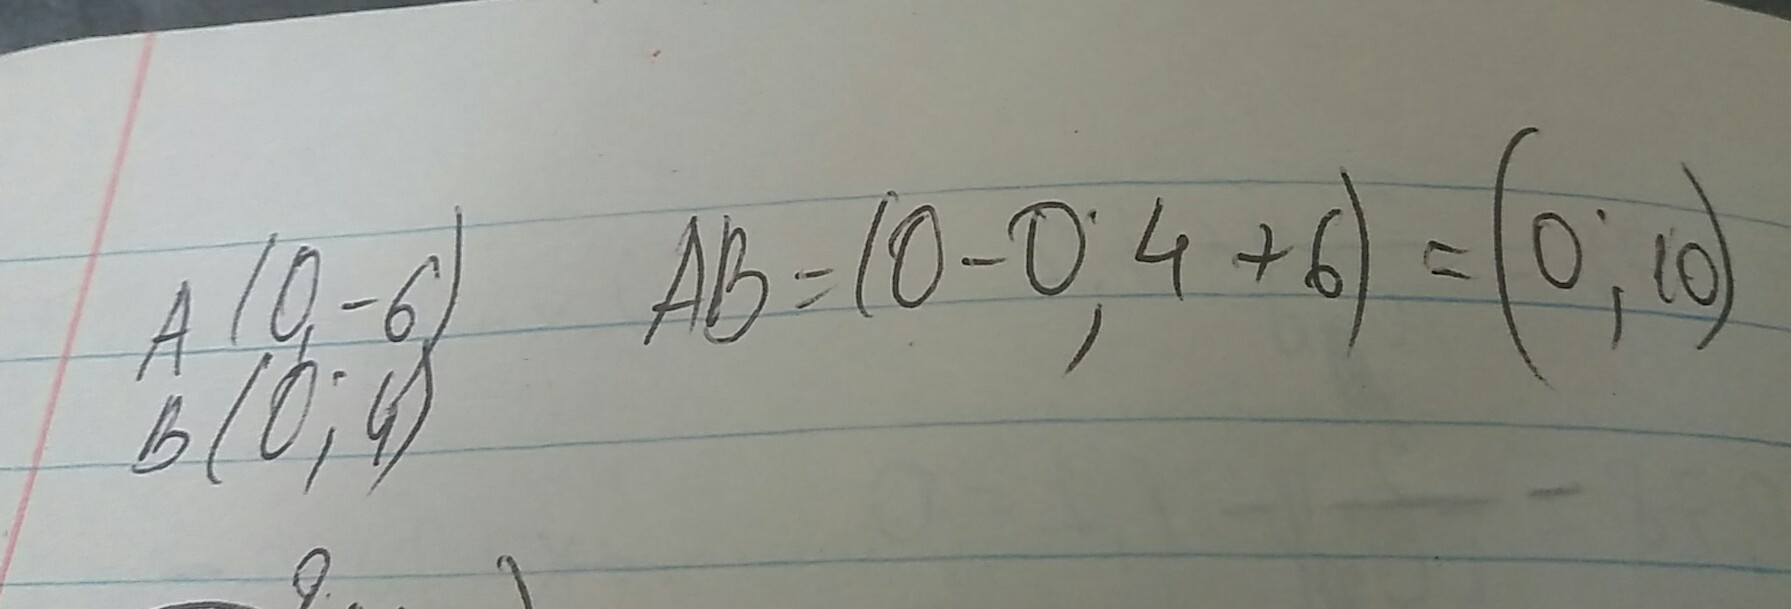 A (0, -6) AB = (0 - 0; 4 + 6) = (0; 10)
B (0; 4)